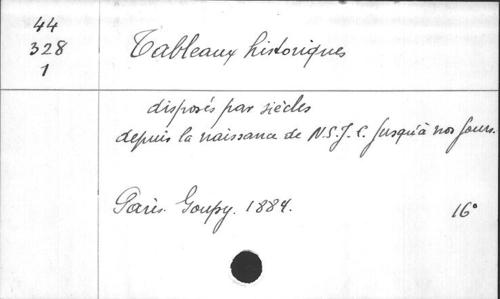 44
328
1
Tableaux historiques
disposés par siècles
depuis la naissance de N.S.J.C. jusqu'à nos jours.
Paris. Goupy. 1884.
16°